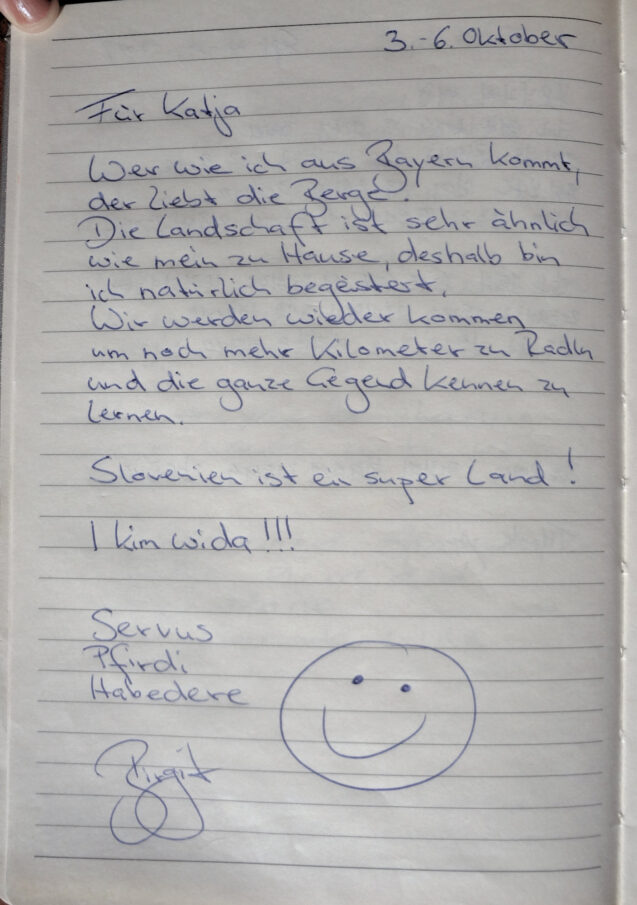 3.-6. Oktober
Für Katja
Wer wie ich aus Bayern kommt,
der liebt die Berge.
Die Landschaft ist sehr ähnlich
wie mein zu Hause, deshalb bin
ich natürlich begeistert.
Wir werden wieder kommen
um noch mehr Kilometer zu Radln
und die ganze Gegend kennen zu
lernen.
Slovenien ist ein super Land!
I kim wida!!!
Servus
Pfirdi
Habedere
Birgit